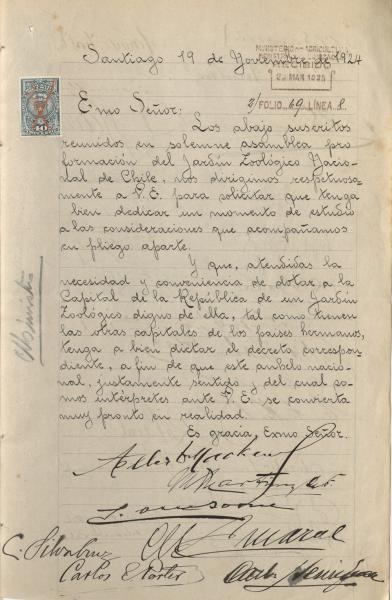 Santiago 19 de Noviembre de 1924
MINISTERIO DE AGRICULTURA
RECIBIDO
24 MAR 1925
2/ FOLIO 69 LÍNEA 8
10
Exmo Señor:
Los abajo suscritos
reunidos en solemne asamblea pro
formación del Jardín Zoológico Nacio-
nal de Chile, nos dirigimos respetuosa-
mente a V.E. para solicitar que tenga
a bien dedicar un momento de estudio
a las consideraciones que acompañamos
en pliego aparte.
Y que, atendidas la
necesidad y conveniencia de dotar a la
Capital de la República de un Jardín
Zoológico digno de ella, tal como tienen
las otras capitales de los países hermanos,
tenga a bien dictar el decreto correspon-
diente, a fin de que este anhelo nacio-
nal, justamente sentido y del cual so-
mos intérpretes ante V.E. se convierta
muy pronto en realidad.
Es gracia, Exmo Señor.
C. Silva Cruz
Carlos E. Porter